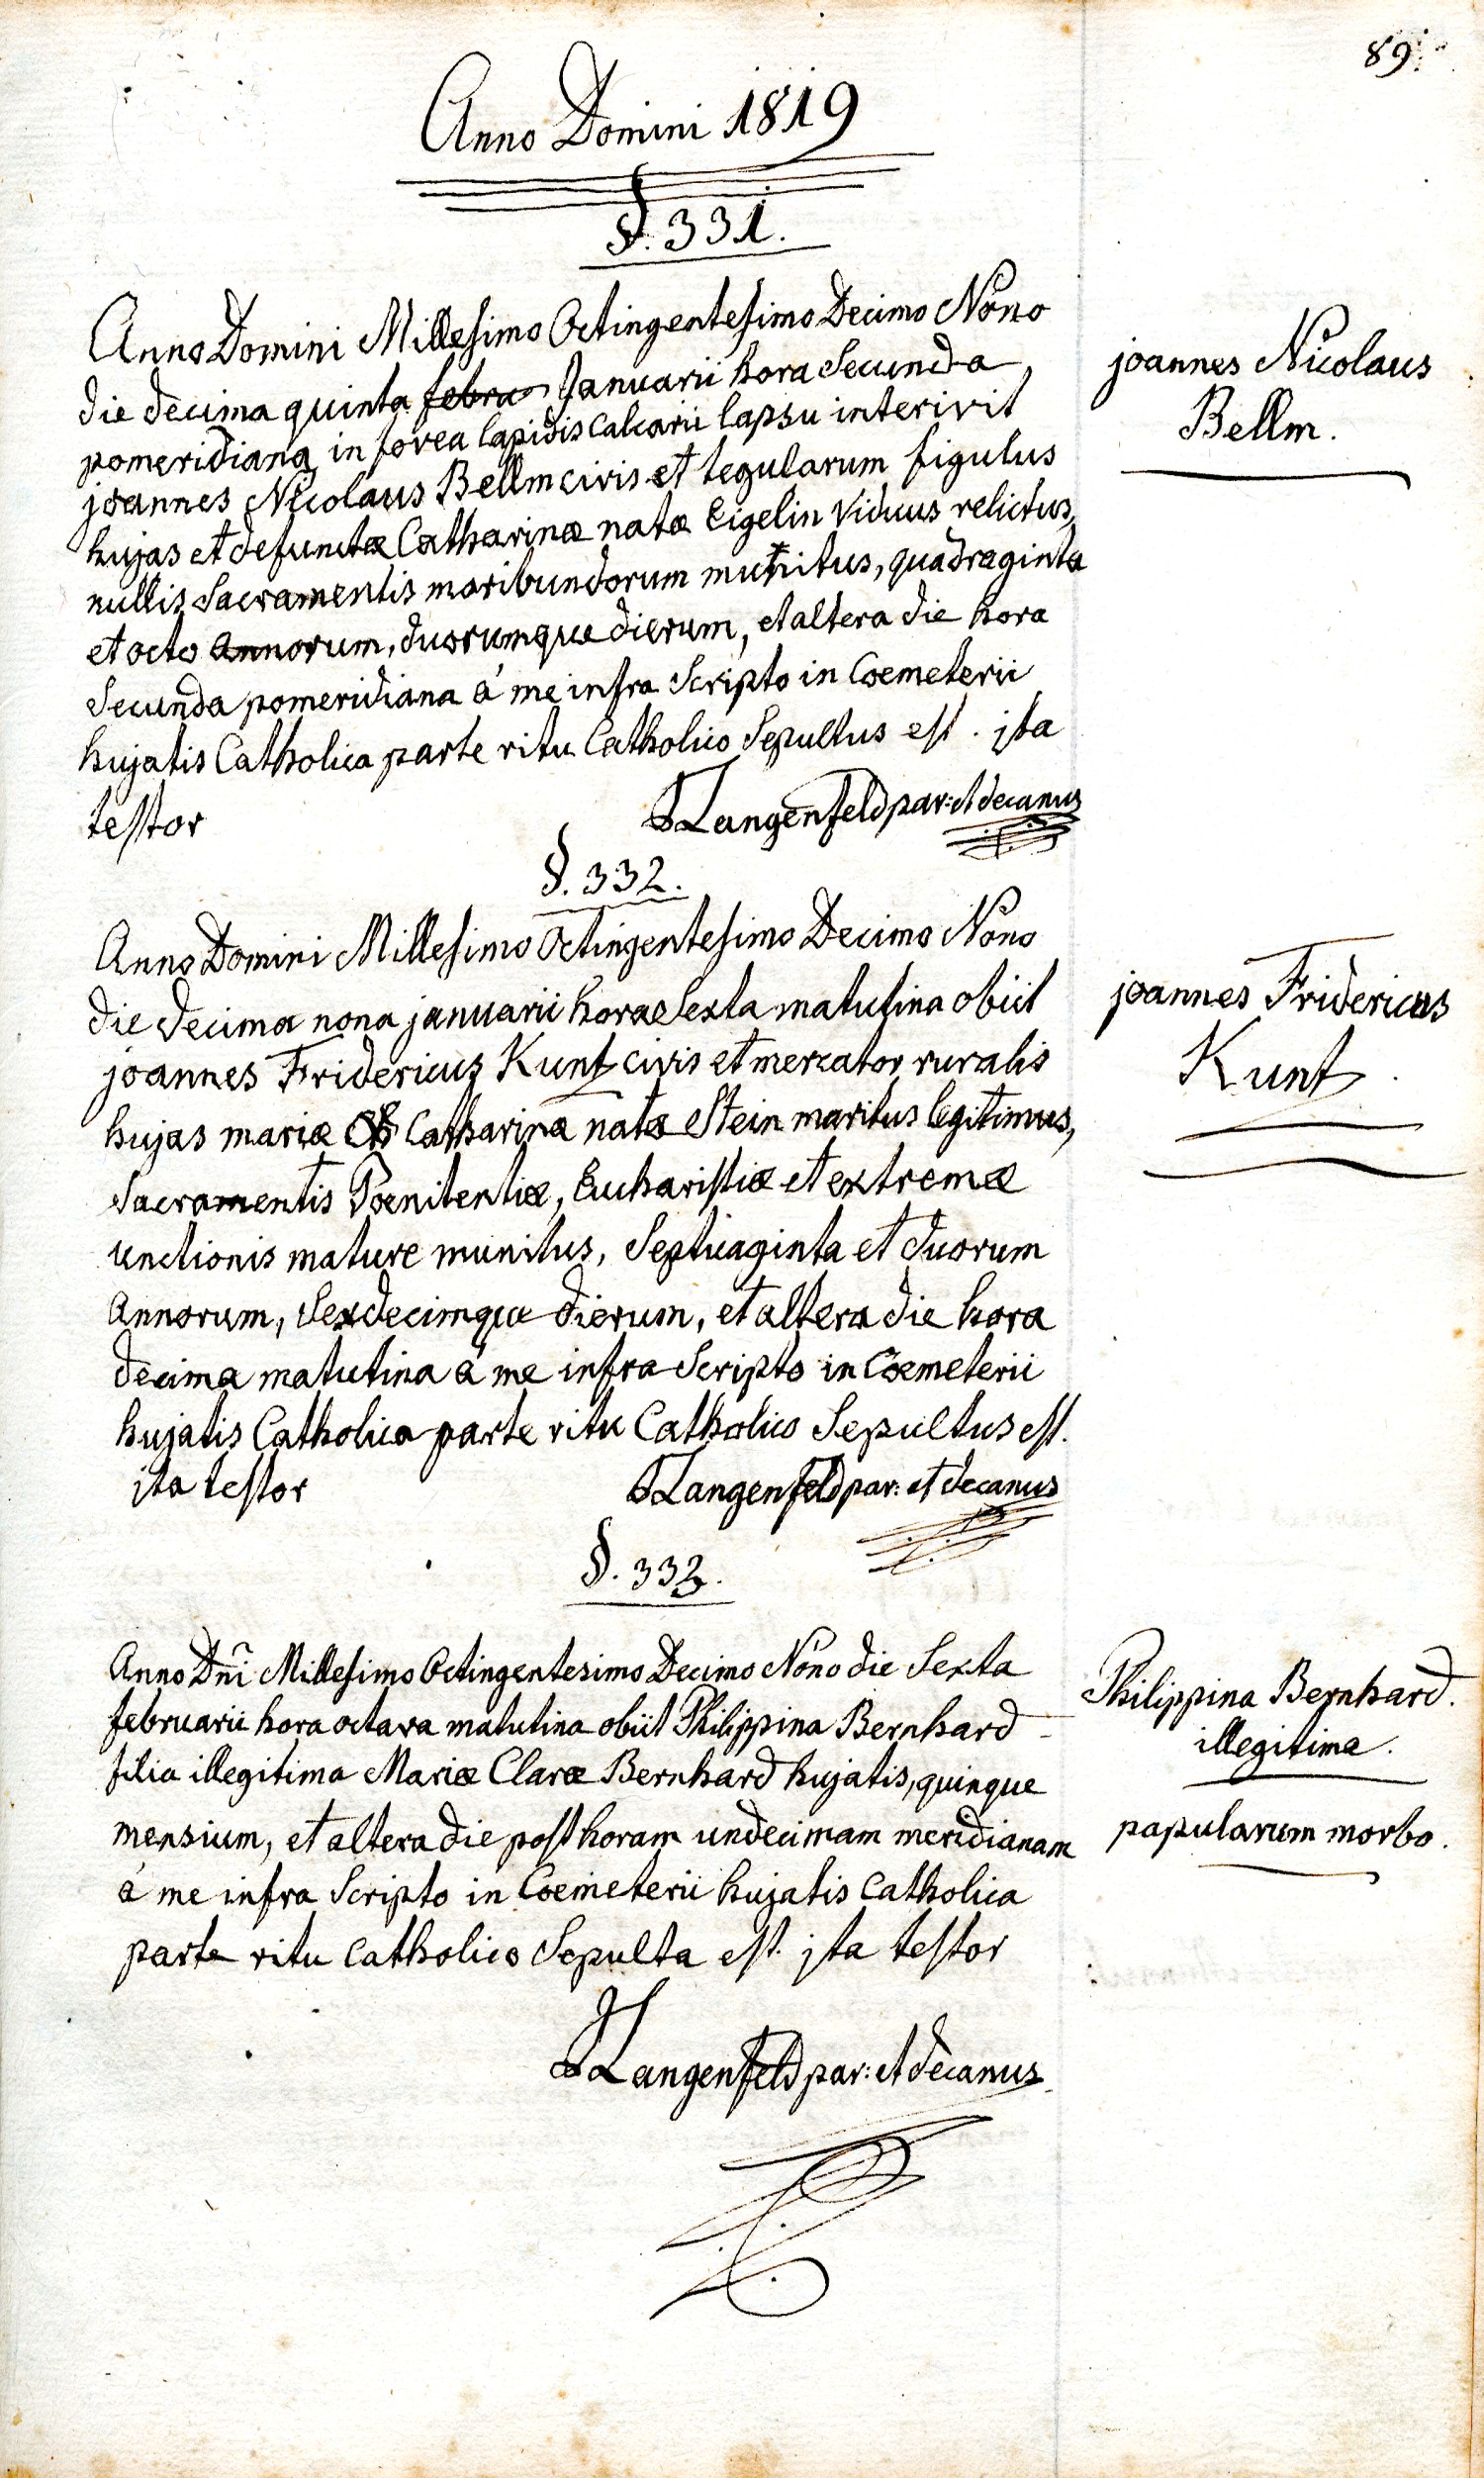 89.
Anno Domini 1819
§. 331.
Anno Domini Millesimo Octingentesimo Decimo Nono
die decima quinta febru Januarii hora Secunda
pomeridiana in fovea lapidis calcarii lapsu interivit
joannes Nicolaus Bellm civis et tegularum figulus
hujas et defunctæ Catharinæ natæ Eigelin viduus relictus,
nullis Sacramentis moribundorum munitus, quadraginta
et octo annorum, duorumque dierum, et altera die hora
Secunda pomeridiana á me infra Scripto in Coemeterii
hujatis Catholica parte ritu Catholico Sepultus est. jta
testor
Langenfeld par: et decanus
joannes Nicolaus
Bellm.
§. 332.
Anno Domini Millesimo Octingentesimo Decimo Nono
die decima nona januarii hora Sexta matutina obiit
joannes Fridericus Kuntz civis et mercator ruralis
hujas mariæ Catharina natæ Stein maritus legitimus,
Sacramentis Poenitentiæ, Eucharistiæ et extremæ
unctionis mature munitus, Septuaginta et duorum
annorum, Sexdecimque dierum, et altera die hora
decima matutina á me infra Scripto in Coemeterii
hujatis Catholica parte ritu Catholico Sepultus est.
jta testor
Langenfeld par: et decanus
joannes Fridericus
Kuntz.
§. 333.
Anno Dñi Millesimo Octingentesimo Decimo Nono die Sexta
februarii hora octava matutina obiit Philippina Bernhard
filia illegitima Mariæ Claræ Bernhard hujatis, quinque
mensium, et altera die post horam undecimam meridianam
á me infra Scripto in Coemeterii hujatis Catholica
parte ritu catholico Sepulta est. jta testor
Langenfeld par: et decanus
Philippina Bernhard.
illegitima.
papularum morbo.